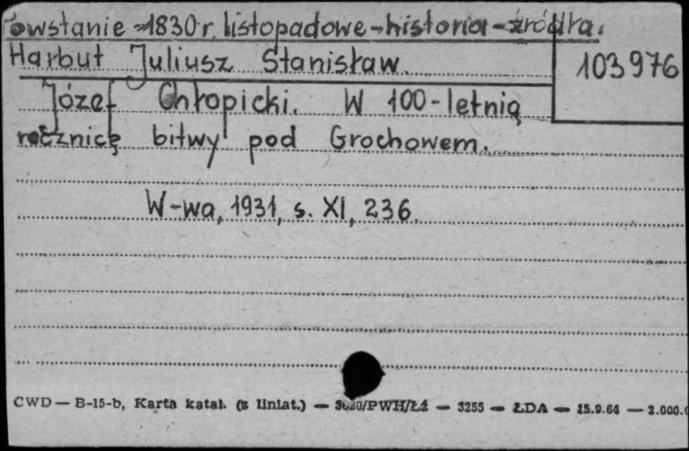 Powstanie - 1830 r. listopadowe - historia - źródła.
Harbut Juliusz Stanisław.
103976
Józef Chłopicki. W 100-letnią
rocznicę bitwy pod Grochowem.
W-wa, 1931, s. XI, 236
CWD — B-15-b, Karta katal. (z liniat.) — /PWH/Łż — 3255 — ŁDA — 15.9.64 — 2.000.0